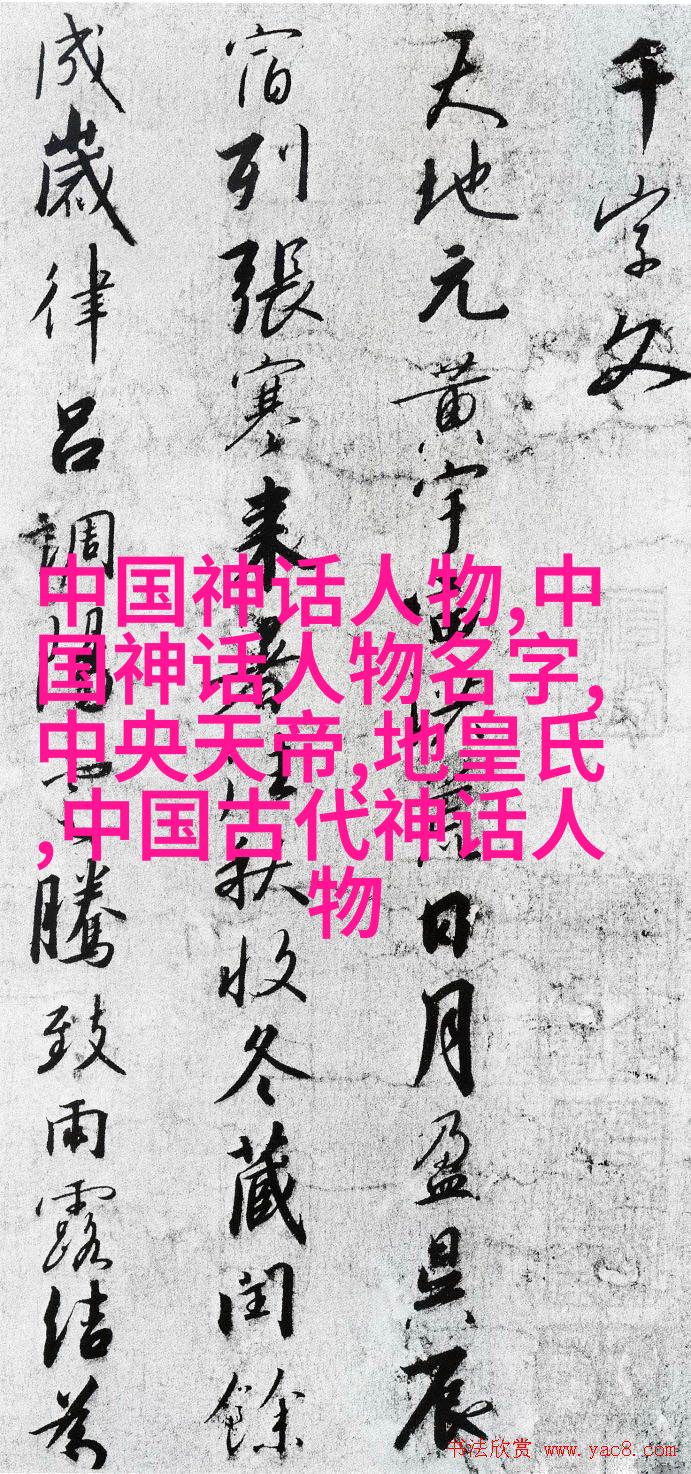 千字文
天地元黄宇宙洪荒日月盈昃辰
宿列張寒来暑往秋收冬藏閏餘
成歲律呂調陽雲騰致雨露結為
中国神话人物,中
国神话人物名字,
中央天帝,地皇氏
,中国古代神话人
物
书法欣赏 www.yac8.com